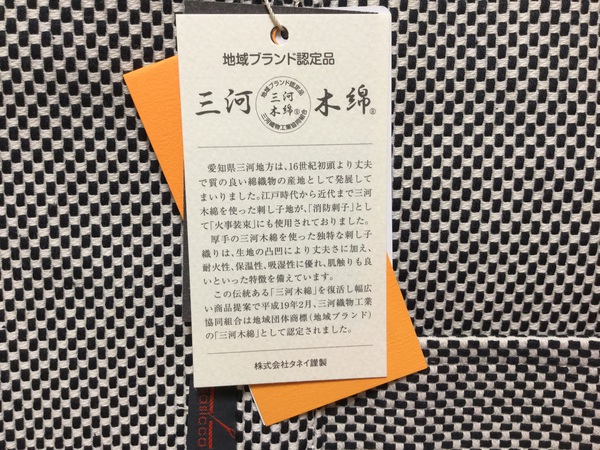 地域ブランド認定品
三河 木綿®
地域ブランド認定品
三河
木綿®
三河織物工業協同組合
愛知県三河地方は、16世紀初頭より丈夫
で質の良い綿織物の産地として発展して
まいりました。江戸時代から近代まで三河
木綿を使った刺し子地が、「消防刺子」とし
て「火事装束」にも使用されておりました。
厚手の三河木綿を使った独特な刺し子
織りは、生地の凸凹により丈夫さに加え、
耐火性、保温性、吸湿性に優れ、肌触りも良
いといった特徴を備えています。
この伝統ある「三河木綿」を復活し幅広
い商品提案で平成19年2月、三河織物工業
協同組合は地域団体商標(地域ブランド)
の「三河木綿」として認定されました。
株式会社タネイ謹製